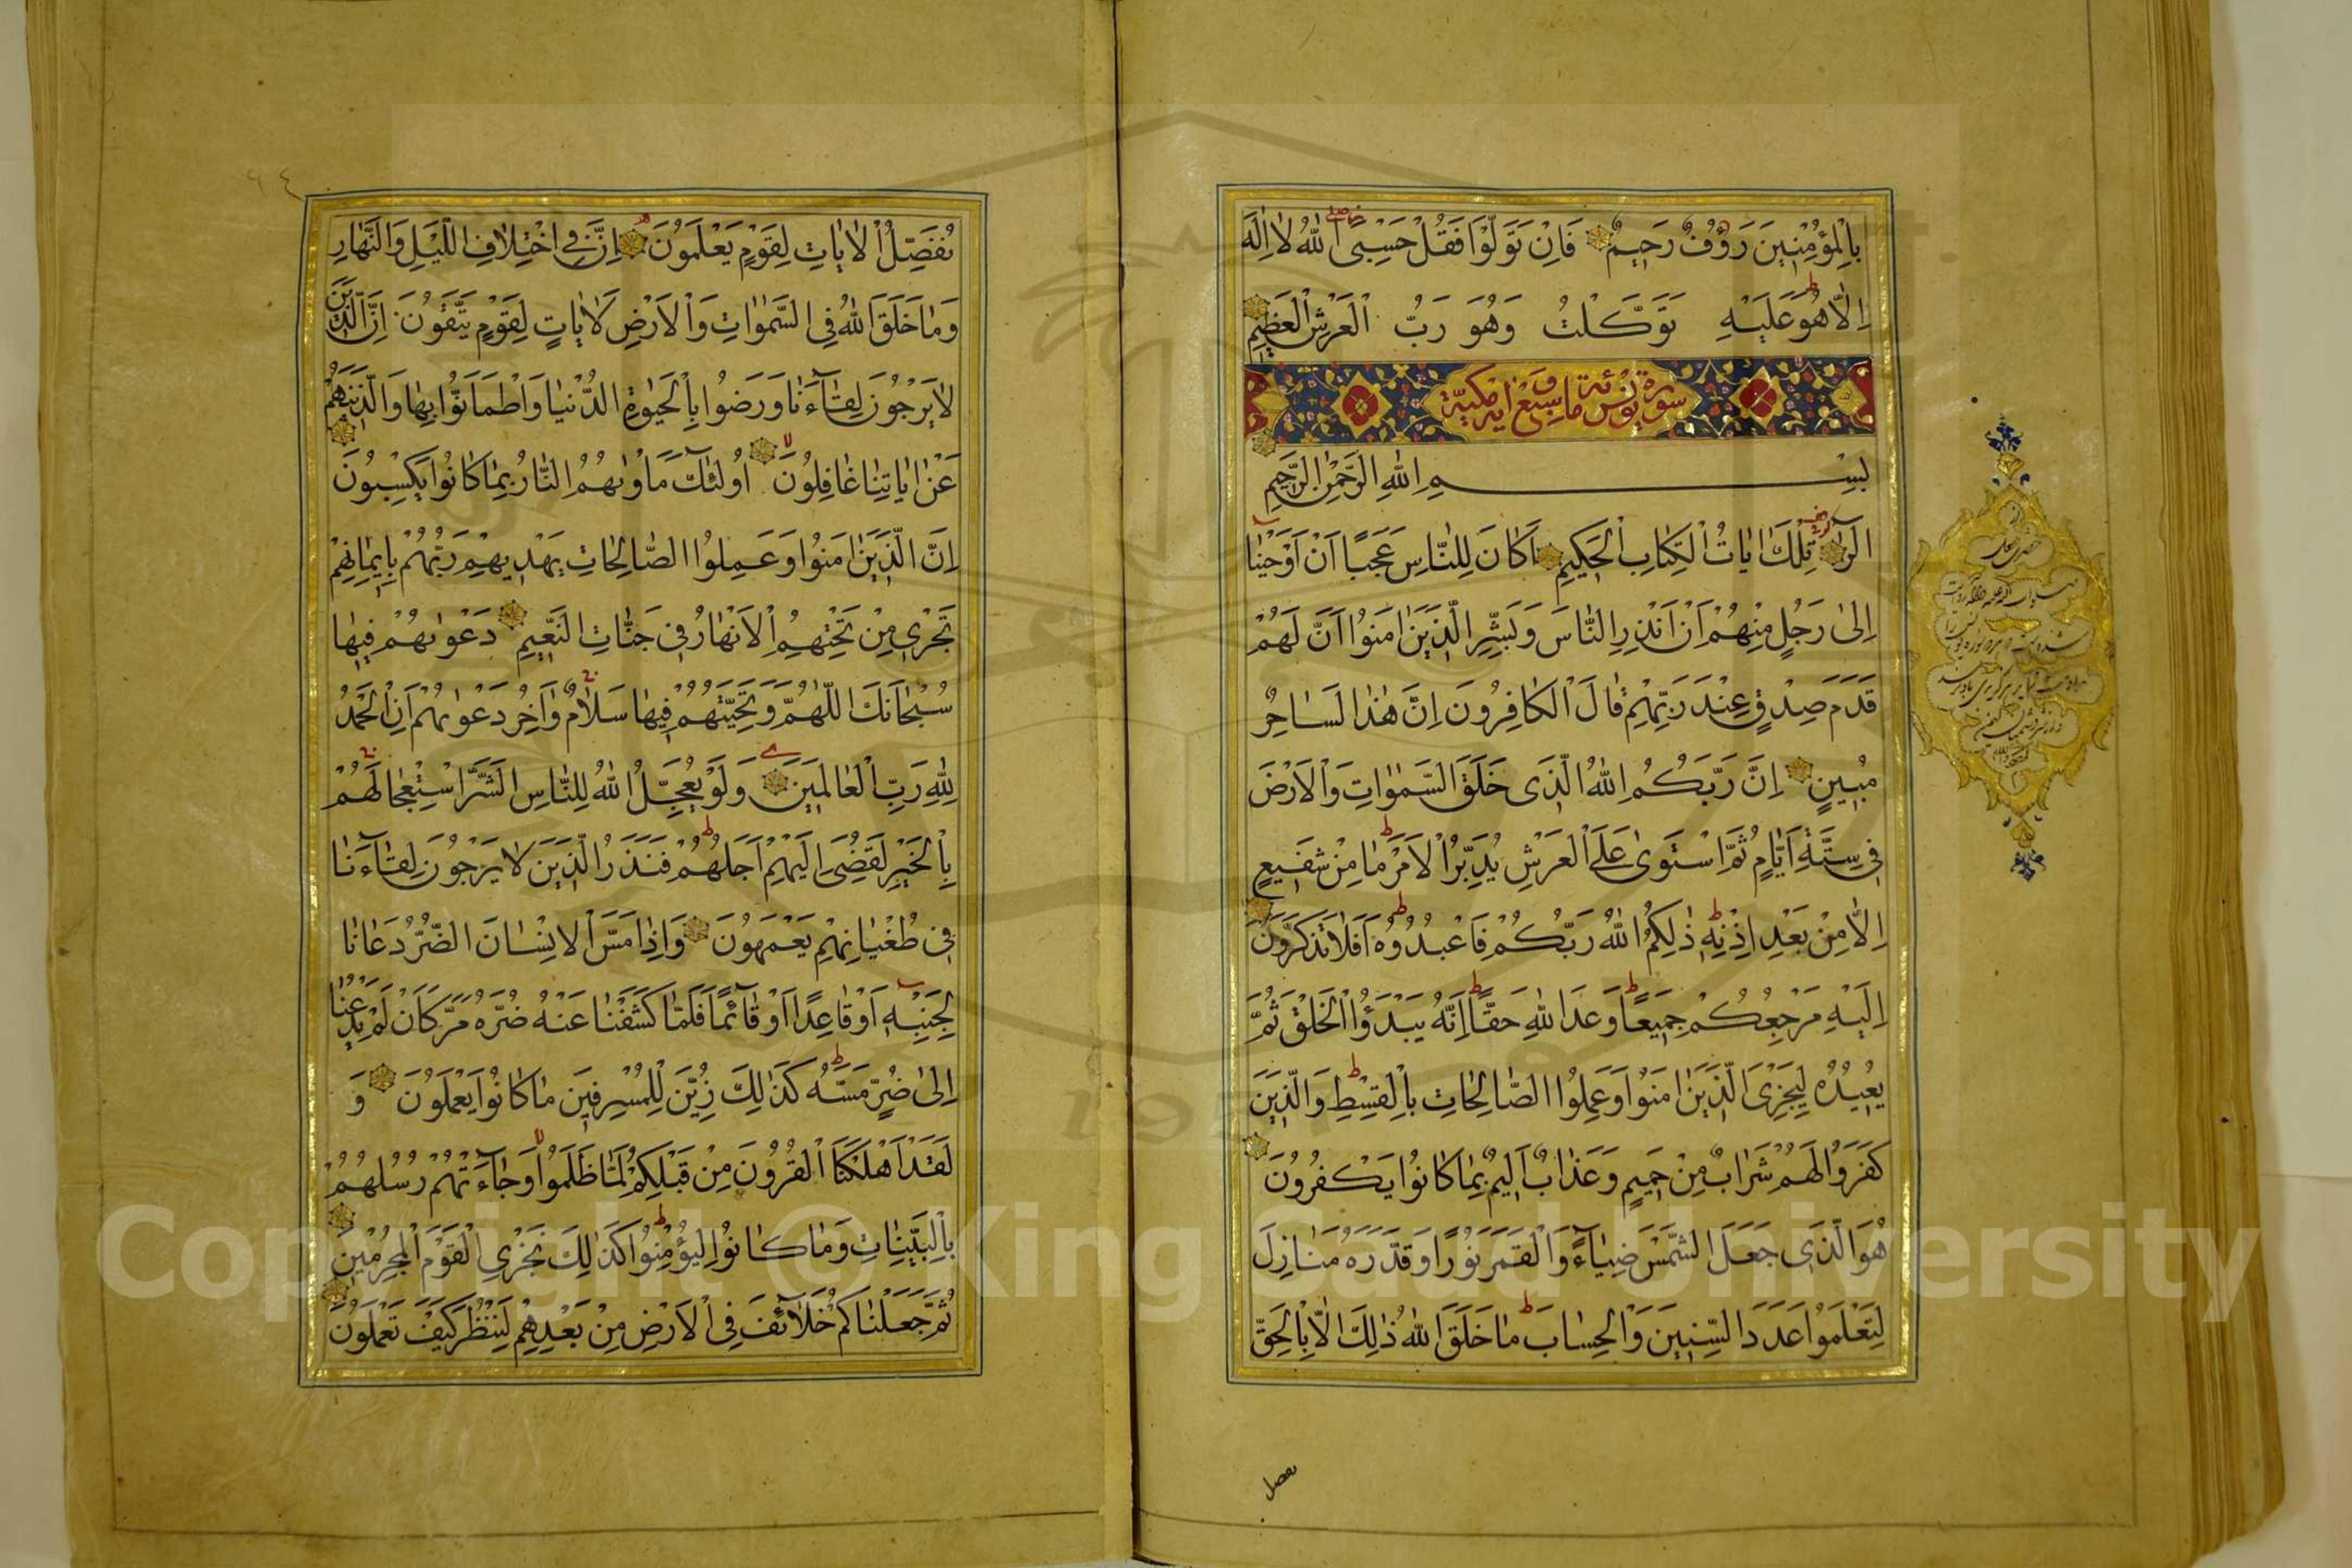 بِالْمُؤْمِنِينَ رَؤُفٌ رَحِيمٌ فَاِنْ تَوَلَّوْا فَقُلْ حَسْبِیَ اللّٰهُ لَا اِلٰهَ
اِلَّا هُوَ عَلَيْهِ تَوَكَّلْتُ وَهُوَ رَبُّ الْعَرْشِ الْعَظِيمِ
سورة يونس مائة وتسع اية مكية
بِسْمِ اللّٰهِ الرَّحْمٰنِ الرَّحِيمِ
الٓرٰ تِلْكَ اٰيَاتُ الْكِتَابِ الْحَكِيمِ اَكَانَ لِلنَّاسِ عَجَبًا اَنْ اَوْحَيْنَا
اِلٰى رَجُلٍ مِنْهُمْ اَنْ اَنْذِرِ النَّاسَ وَبَشِّرِ الَّذِينَ اٰمَنُوا اَنَّ لَهُمْ
قَدَمَ صِدْقٍ عِنْدَ رَبِّهِمْ قَالَ الْكَافِرُونَ اِنَّ هٰذَا لَسَاحِرٌ
مُبِينٌ اِنَّ رَبَّكُمُ اللّٰهُ الَّذِى خَلَقَ السَّمٰوَاتِ وَالْاَرْضَ
فِى سِتَّةِ اَيَّامٍ ثُمَّ اسْتَوٰى عَلَى الْعَرْشِ يُدَبِّرُ الْاَمْرَ مَا مِنْ شَفِيعٍ
اِلَّا مِنْ بَعْدِ اِذْنِهِ ذٰلِكُمُ اللّٰهُ رَبُّكُمْ فَاعْبُدُوهُ اَفَلَا تَذَكَّرُونَ
اِلَيْهِ مَرْجِعُكُمْ جَمِيعًا وَعْدَ اللّٰهِ حَقًّا اِنَّهُ يَبْدَؤُا الْخَلْقَ ثُمَّ
يُعِيدُهُ لِيَجْزِىَ الَّذِينَ اٰمَنُوا وَعَمِلُوا الصَّالِحَاتِ بِالْقِسْطِ وَالَّذِينَ
كَفَرُوا لَهُمْ شَرَابٌ مِنْ حَمِيمٍ وَعَذَابٌ اَلِيمٌ بِمَا كَانُوا يَكْفُرُونَ
هُوَ الَّذِى جَعَلَ الشَّمْسَ ضِيَاءً وَالْقَمَرَ نُورًا وَقَدَّرَهُ مَنَازِلَ
لِتَعْلَمُوا عَدَدَ السِّنِينَ وَالْحِسَابَ مَا خَلَقَ اللّٰهُ ذٰلِكَ اِلَّا بِالْحَقِّ
يفصل
يُفَصِّلُ الْاٰيَاتِ لِقَوْمٍ يَعْلَمُونَ اِنَّ فِى اخْتِلَافِ اللَّيْلِ وَالنَّهَارِ
وَمَا خَلَقَ اللّٰهُ فِى السَّمٰوَاتِ وَالْاَرْضِ لَاٰيَاتٍ لِقَوْمٍ يَتَّقُونَ اِنَّ الَّذِينَ
لَا يَرْجُونَ لِقَآءَنَا وَرَضُوا بِالْحَيٰوةِ الدُّنْيَا وَاطْمَاَنُّوا بِهَا وَالَّذِينَ هُمْ
عَنْ اٰيَاتِنَا غَافِلُونَ اُولٰئِكَ مَاْوٰيهُمُ النَّارُ بِمَا كَانُوا يَكْسِبُونَ
اِنَّ الَّذِينَ اٰمَنُوا وَعَمِلُوا الصَّالِحَاتِ يَهْدِيهِمْ رَبُّهُمْ بِاِيمَانِهِمْ
تَجْرِى مِنْ تَحْتِهِمُ الْاَنْهَارُ فِى جَنَّاتِ النَّعِيمِ دَعْوٰيهُمْ فِيهَا
سُبْحَانَكَ اللّٰهُمَّ وَتَحِيَّتُهُمْ فِيهَا سَلَامٌ وَاٰخِرُ دَعْوٰيهُمْ اَنِ الْحَمْدُ
لِلّٰهِ رَبِّ الْعَالَمِينَ وَلَوْ يُعَجِّلُ اللّٰهُ لِلنَّاسِ الشَّرَّ اسْتِعْجَالَهُمْ
بِالْخَيْرِ لَقُضِىَ اِلَيْهِمْ اَجَلُهُمْ فَنَذَرُ الَّذِينَ لَا يَرْجُونَ لِقَآءَنَا
فِى طُغْيَانِهِمْ يَعْمَهُونَ وَاِذَا مَسَّ الْاِنْسَانَ الضُّرُّ دَعَانَا
لِجَنْبِهِ اَوْ قَاعِدًا اَوْ قَآئِمًا فَلَمَّا كَشَفْنَا عَنْهُ ضُرَّهُ مَرَّ كَاَنْ لَمْ يَدْعُنَا
اِلٰى ضُرٍّ مَسَّهُ كَذٰلِكَ زُيِّنَ لِلْمُسْرِفِينَ مَا كَانُوا يَعْمَلُونَ وَ
لَقَدْ اَهْلَكْنَا الْقُرُونَ مِنْ قَبْلِكُمْ لَمَّا ظَلَمُوا وَجَآءَتْهُمْ رُسُلُهُمْ
بِالْبَيِّنَاتِ وَمَا كَانُوا لِيُؤْمِنُوا كَذٰلِكَ نَجْزِى الْقَوْمَ الْمُجْرِمِينَ
ثُمَّ جَعَلْنَاكُمْ خَلَآئِفَ فِى الْاَرْضِ مِنْ بَعْدِهِمْ لِنَنْظُرَ كَيْفَ تَعْمَلُونَ
Copyright © King Saud University